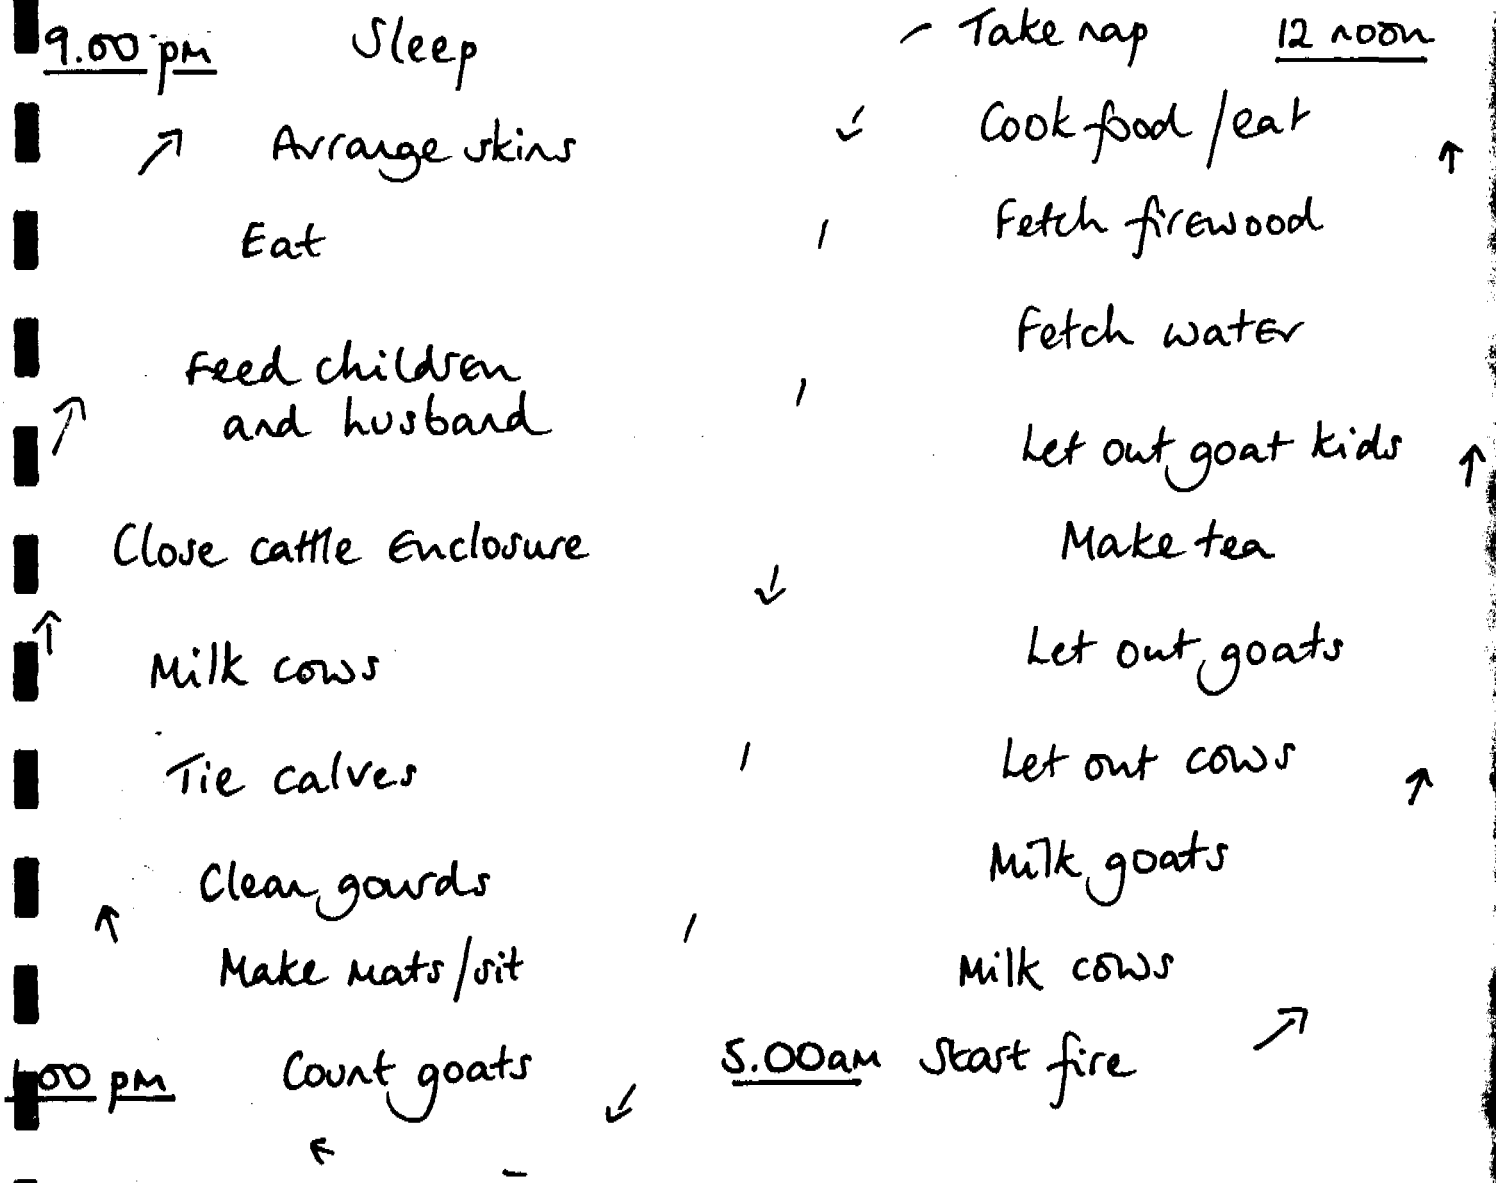 9.00 pm Sleep
Arrange skins
Eat
Feed children
and husband
Close cattle enclosure
Milk cows
Tie calves
Clean gourds
Make mats/sit
00 pm Count goats
Take nap 12 noon
Cook food/eat
Fetch firewood
Fetch water
Let out goat kids
Make tea
Let out goats
Let out cows
Milk goats
Milk cows
5.00am Start fire